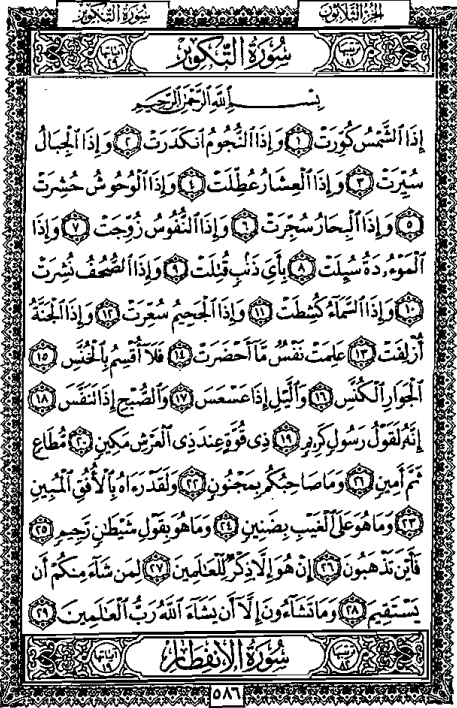 الجزء الثلاثون سُورَةُ التَّكْوِير
ترتيبها ٨١ سُورَةُ التَّكْوِير آياتها ٢٩
بِسْمِ اللَّهِ الرَّحْمَٰنِ الرَّحِيمِ
إِذَا ٱلشَّمْسُ كُوِّرَتْ ١ وَإِذَا ٱلنُّجُومُ ٱنكَدَرَتْ ٢ وَإِذَا ٱلْجِبَالُ
سُيِّرَتْ ٣ وَإِذَا ٱلْعِشَارُ عُطِّلَتْ ٤ وَإِذَا ٱلْوُحُوشُ حُشِرَتْ
٥ وَإِذَا ٱلْبِحَارُ سُجِّرَتْ ٦ وَإِذَا ٱلنُّفُوسُ زُوِّجَتْ ٧ وَإِذَا
ٱلْمَوْءُۥدَةُ سُئِلَتْ ٨ بِأَىِّ ذَنۢبٍ قُتِلَتْ ٩ وَإِذَا ٱلصُّحُفُ نُشِرَتْ
١٠ وَإِذَا ٱلسَّمَآءُ كُشِطَتْ ١١ وَإِذَا ٱلْجَحِيمُ سُعِّرَتْ ١٢ وَإِذَا ٱلْجَنَّةُ
أُزْلِفَتْ ١٣ عَلِمَتْ نَفْسٌ مَّآ أَحْضَرَتْ ١٤ فَلَآ أُقْسِمُ بِٱلْخُنَّسِ ١٥
ٱلْجَوَارِ ٱلْكُنَّسِ ١٦ وَٱلَّيْلِ إِذَا عَسْعَسَ ١٧ وَٱلصُّبْحِ إِذَا تَنَفَّسَ ١٨
إِنَّهُۥ لَقَوْلُ رَسُولٍ كَرِيمٍ ١٩ ذِى قُوَّةٍ عِندَ ذِى ٱلْعَرْشِ مَكِينٍ ٢٠ مُّطَاعٍ
ثَمَّ أَمِينٍ ٢١ وَمَا صَاحِبُكُم بِمَجْنُونٍ ٢٢ وَلَقَدْ رَءَاهُ بِٱلْأُفُقِ ٱلْمُبِينِ
٢٣ وَمَا هُوَ عَلَى ٱلْغَيْبِ بِضَنِينٍ ٢٤ وَمَا هُوَ بِقَوْلِ شَيْطَٰنٍ رَّجِيمٍ ٢٥
فَأَيْنَ تَذْهَبُونَ ٢٦ إِنْ هُوَ إِلَّا ذِكْرٌ لِّلْعَٰلَمِينَ ٢٧ لِمَن شَآءَ مِنكُمْ أَن
يَسْتَقِيمَ ٢٨ وَمَا تَشَآءُونَ إِلَّآ أَن يَشَآءَ ٱللَّهُ رَبُّ ٱلْعَٰلَمِينَ ٢٩
ترتيبها ٨٢ سُورَةُ الانفِطَار آياتها ١٩
٥٨٦